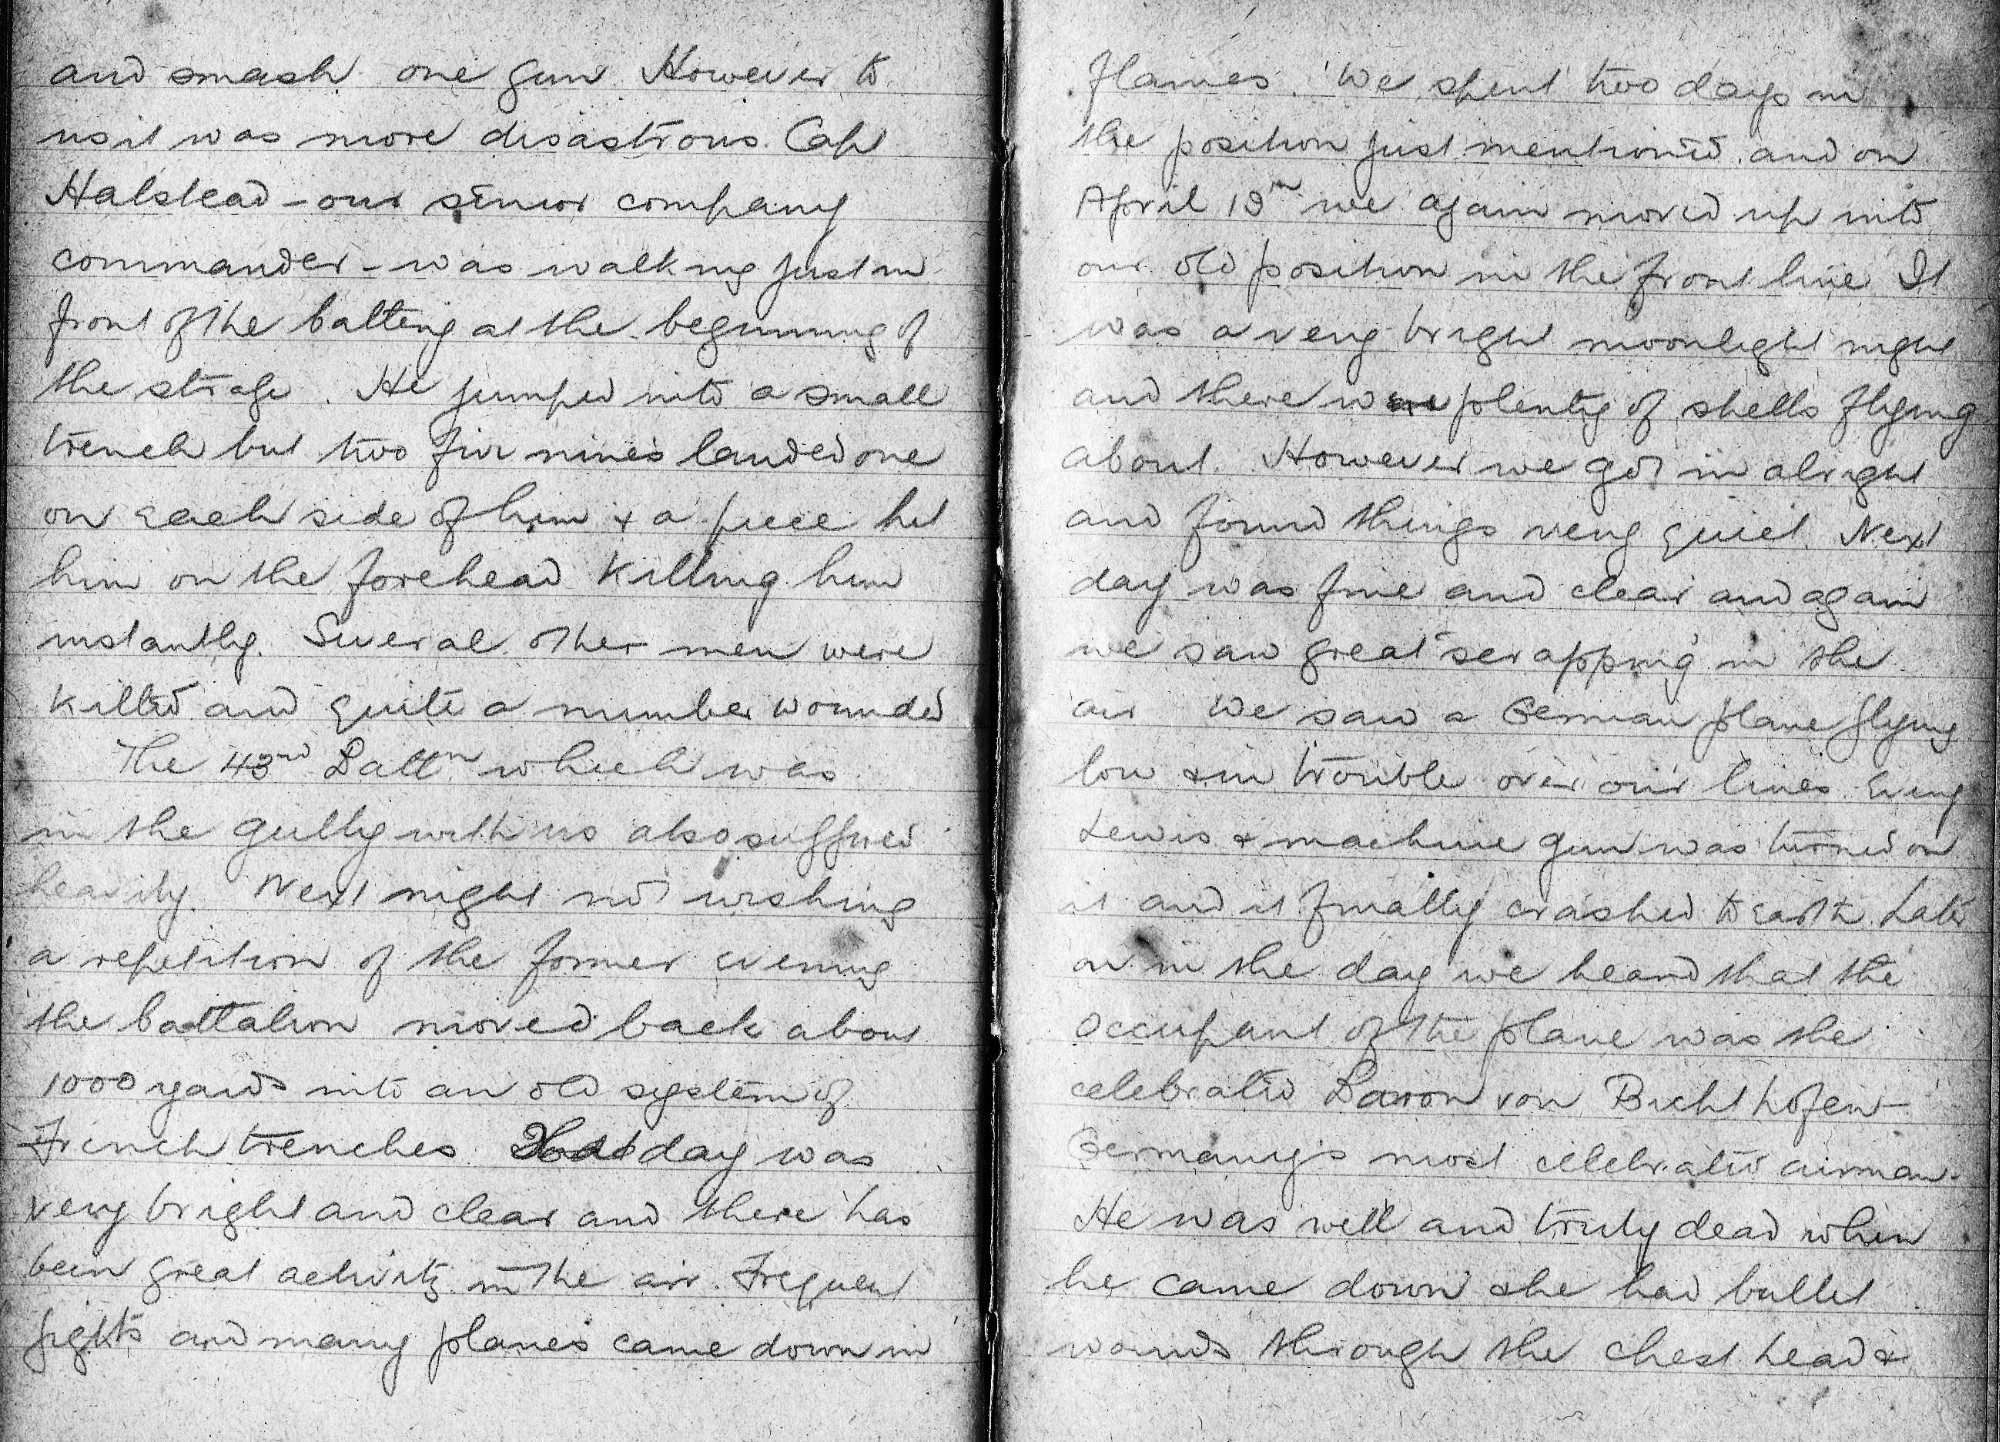 and smash one gun. However to
us it was more disastrous. Capt
Halstead - our senior company
commander - was walking just in
front of the battery at the beginning of
the strafe. He jumped into a small
trench but two five nines landed one
on each side of him & a piece hit
him on the forehead killing him
instantly. Several other men were
killed and quite a number wounded
The 43rd Battn which was
in the gully with us also suffered
heavily. Next night not wishing
a repetition of the former evening
the battalion moved back about
1000 yards into an old system of
French trenches. day was
very bright and clear and there has
been great activity in the air. Frequent
fights and many planes came down in
flames. We spent two days in
the position just mentioned and on
April 19th we again moved up into
our old position in the front line. It
was a very bright moonlight night
and there were plenty of shells flying
about. However we got in alright
and found things very quiet. Next
day was fine and clear and again
we saw great "scrapping" in the
air. We saw a German plane flying
low & in trouble over our lines. Every
Lewis & machine gun was turned on
it and it finally crashed to earth. Later
on in the day we heard that the
occupant of the plane was the
celebrated Baron von Richthofen -
Germany's most celebrated airman.
He was well and truly dead when
he came down & he had bullet
wounds through the chest head &